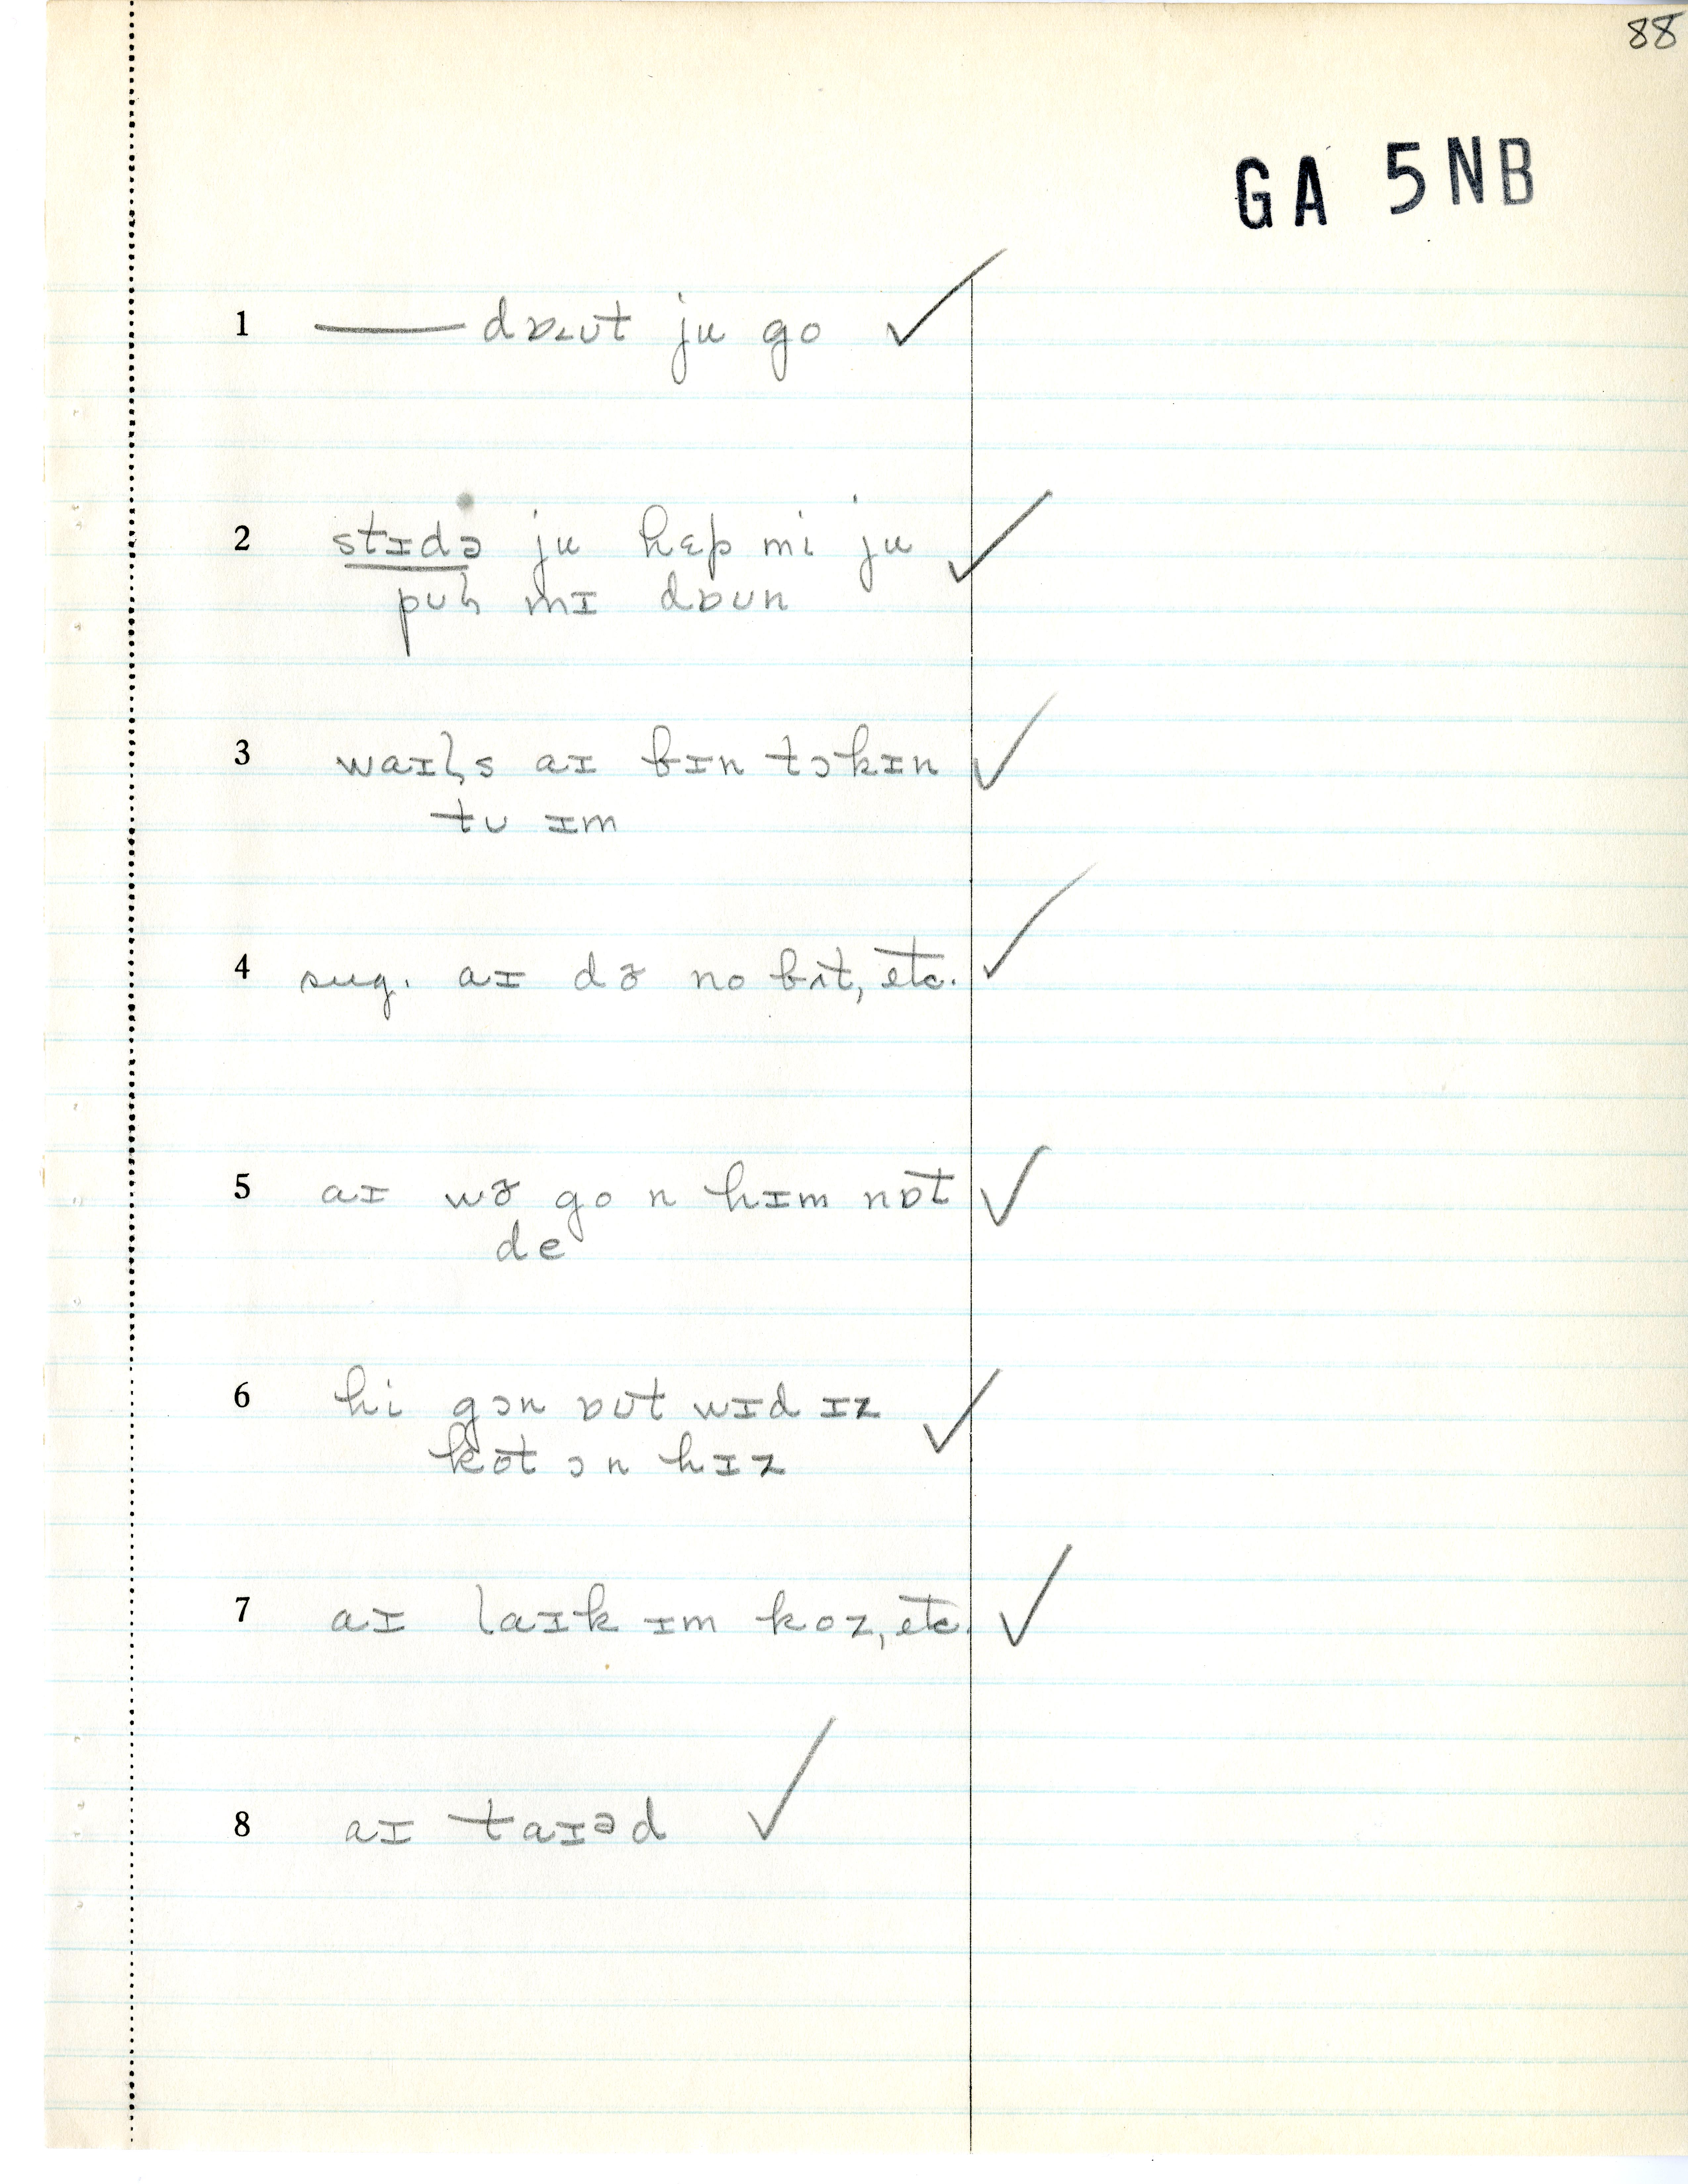 88
GA 5NB
1 —— dɒ˔ʊt ju go ✓
2 stɪdə ju hɛp mi ju ✓
pʊɦ mɪ dɒʊn
3 waɪls aɪ bɪn tɔkɪn ✓
tʊ ɪm
4 sug. aɪ dɚ no bʌt, etc. ✓
5 aɪ wɚ go n hɪm nɒt ✓
de
6 hi gɔn ɒʊt wɪd ɪz ✓
kot ɔn hɪz
7 aɪ laɪk ɪm koz, etc. ✓
8 aɪ taɪəd ✓